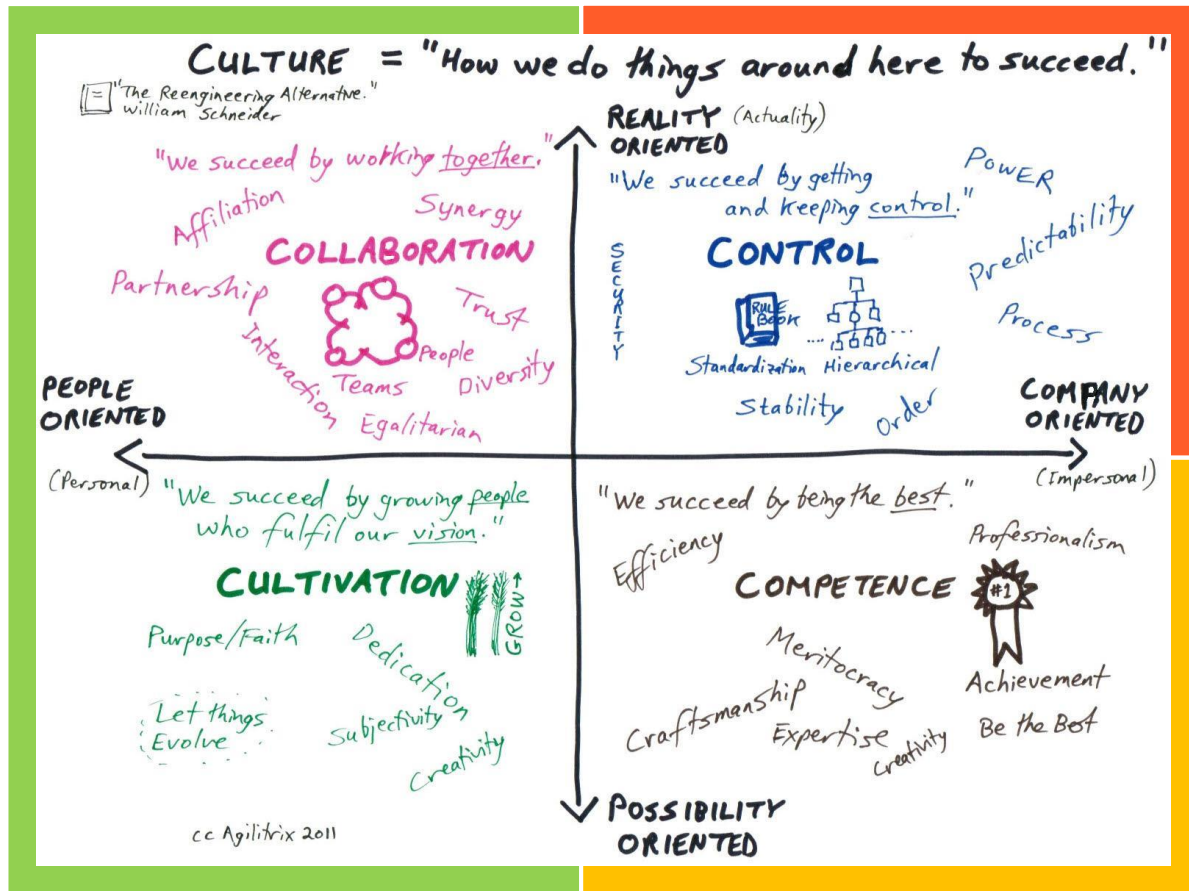 CULTURE = "How we do things around here to succeed."
"The Reengineering Alternative."
William Schneider
REALITY (Actuality)
ORIENTED
"We succeed by working together."
Affiliation
Synergy
COLLABORATION
Partnership
Trust
Interaction
People
Teams
Diversity
Egalitarian
"We succeed by getting
and keeping control."
POWER
SECURITY
CONTROL
Predictability
RULE
BOOK
Process
Standardization
Hierarchical
Stability
Order
PEOPLE
ORIENTED
(Personal)
COMPANY
ORIENTED
(Impersonal)
"We succeed by growing people
who fulfil our vision."
CULTIVATION
GROW
Purpose/Faith
Dedication
Let things
Evolve
Subjectivity
Creativity
"We succeed by being the best."
Efficiency
Professionalism
COMPETENCE
#1
Meritocracy
Achievement
Craftsmanship
Expertise
Creativity
Be the Best
POSSIBILITY
ORIENTED
cc Agilitrix 2011